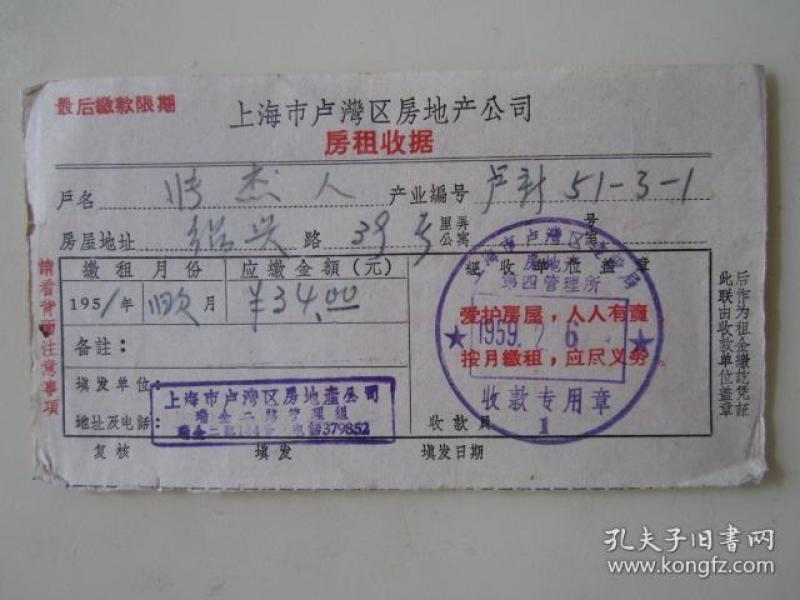 最后缴款限期
上海市卢灣区房地产公司
房租收据
戶名 杰人 产业编号 51-3-1
房屋地址 绍兴 路 39 号 里弄 公寓 号 室
缴租月份 应缴金额(元) 经收单位盖章
195 年 月 ¥34.00
上海市卢灣区
房地产
第四管理所
爱护房屋，人人有責
1959. 2. 6
按月缴租，应尽义务
收款专用章
1
备註：
填发单位：
地址及电話：
上海市卢湾区房地產公司
瑞金二路管理組
瑞金二路144号 电話379852
收款員
复核 填发 填发日期
請看背面注意事項
此联由收款单位盖章
后作为租金繳訖凭証
孔夫子旧书网
www.kongfz.com